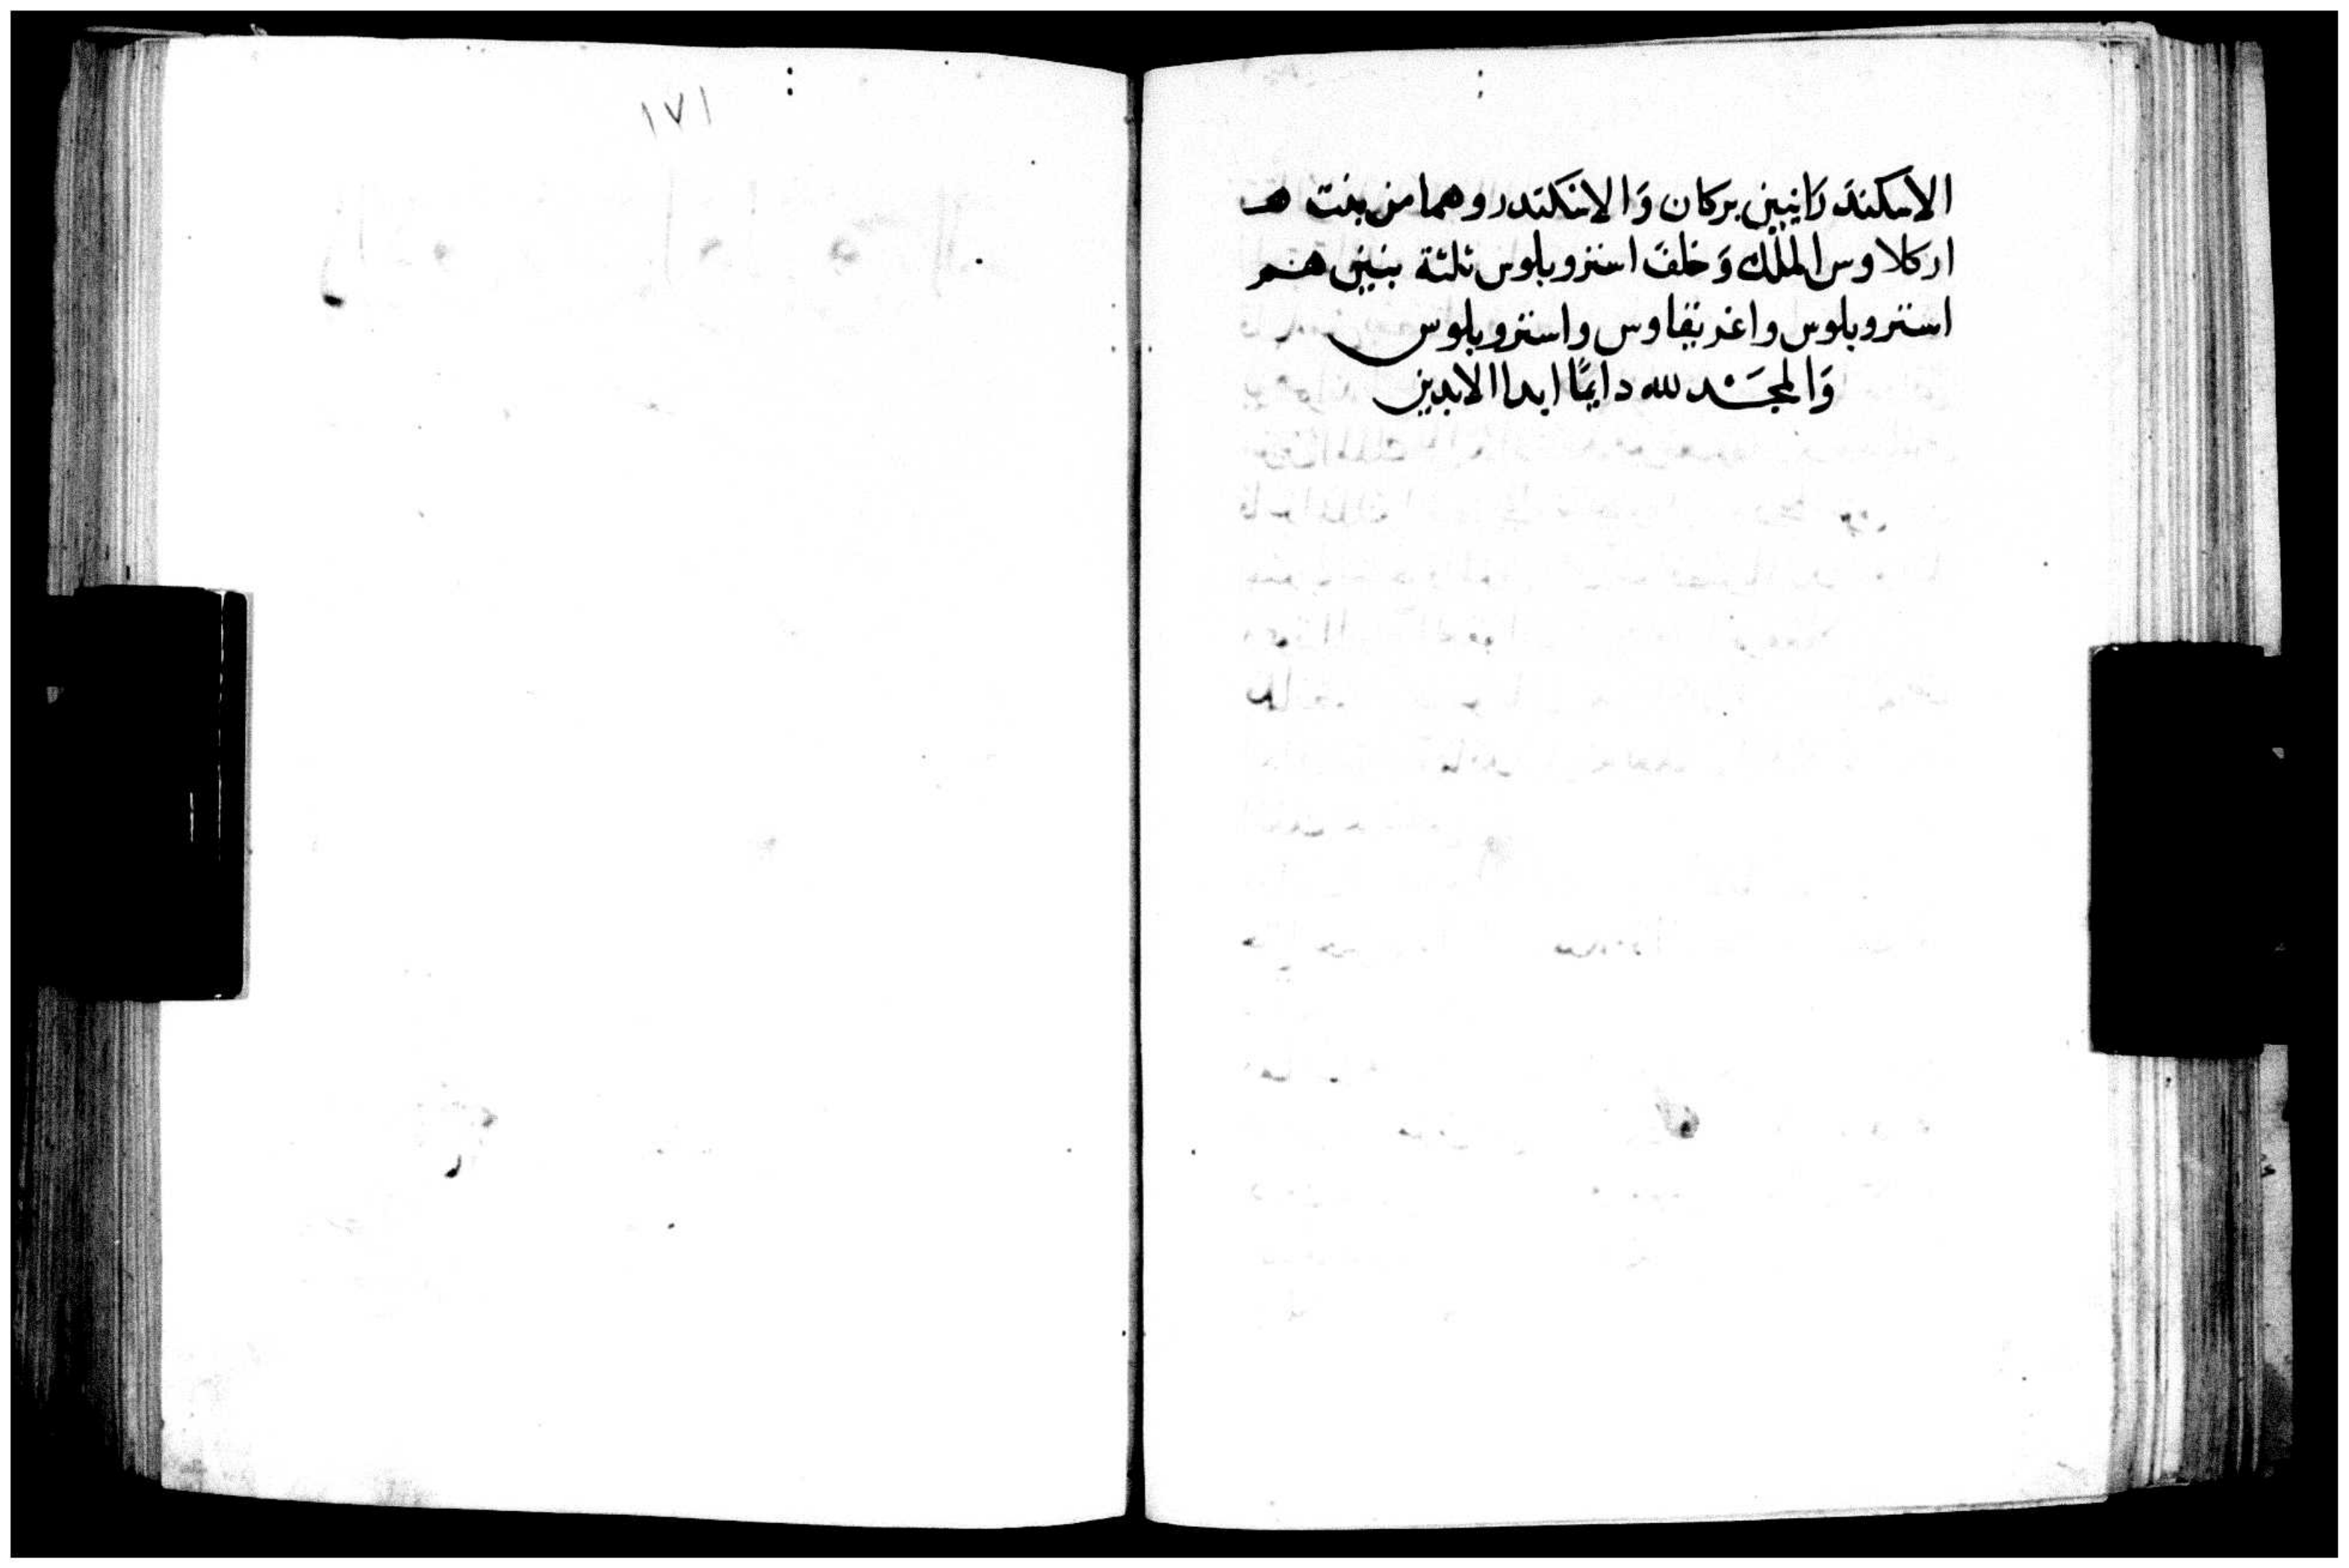 الاسكندَرَانيين بركان وَالاسكندر وهما من بنت
اركلاوس الملك وَخلف استروبلوس ثلثة بنين هم
استروبلوس واغريقاوس واستروبلوس
وَالمجَد لله دايمًا ابدا الابدين
١٧١